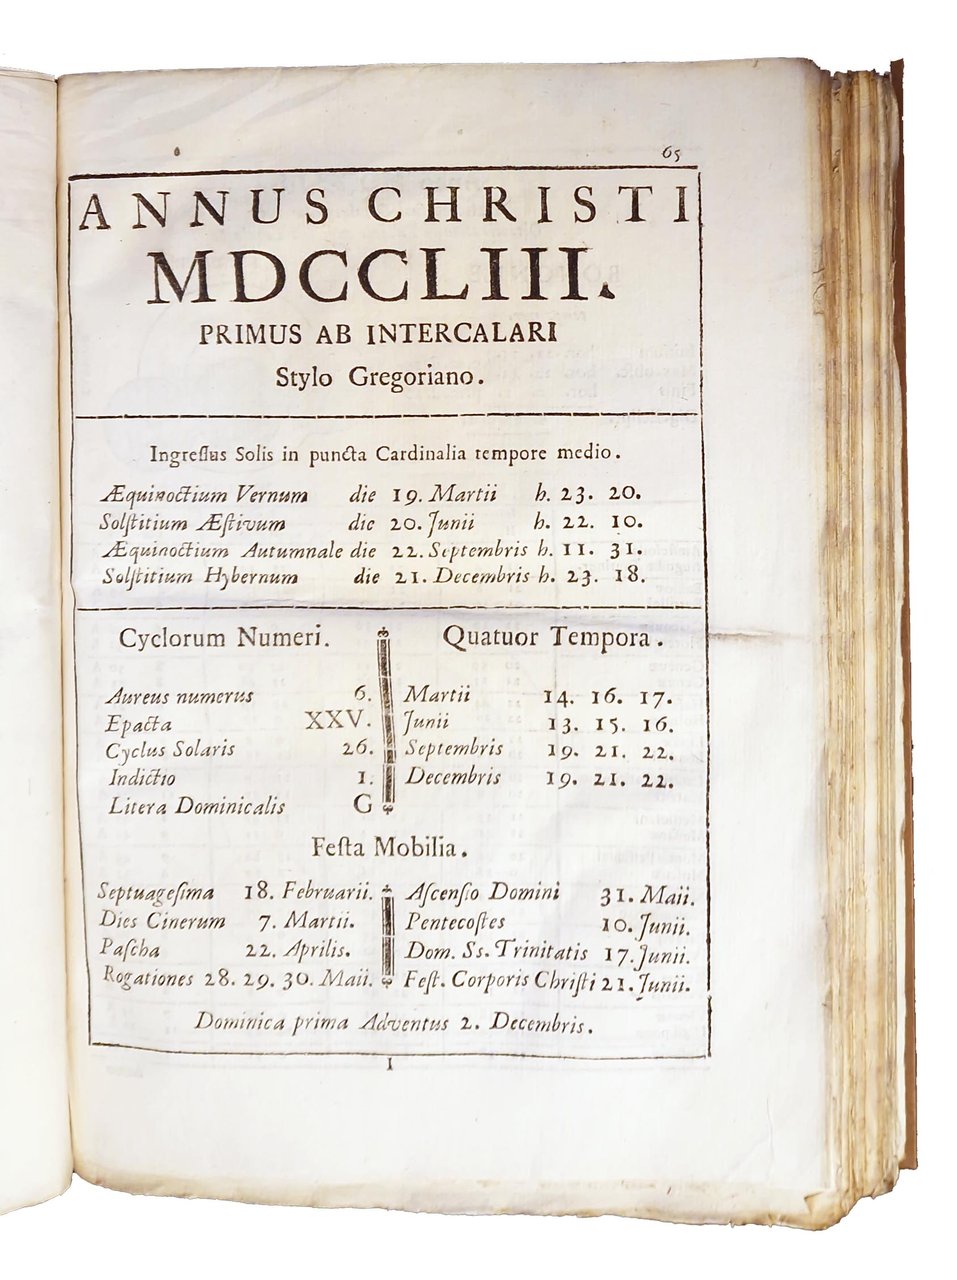 65
ANNUS CHRISTI
MDCCLIII.
PRIMUS AB INTERCALARI
Stylo Gregoriano.
Ingreſſus Solis in puncta Cardinalia tempore medio.
Æquinoctium Vernum die 19. Martii h. 23. 20.
Solſtitium Æſtivum die 20. Junii h. 22. 10.
Æquinoctium Autumnale die 22. Septembris h. 11. 31.
Solſtitium Hybernum die 21. Decembris h. 23. 18.
Cyclorum Numeri.
Aureus numerus 6.
Epacta XXV.
Cyclus Solaris 26.
Indictio 1.
Litera Dominicalis G
Quatuor Tempora.
Martii 14. 16. 17.
Junii 13. 15. 16.
Septembris 19. 21. 22.
Decembris 19. 21. 22.
Feſta Mobilia.
Septuageſima 18. Februarii.
Dies Cinerum 7. Martii.
Paſcha 22. Aprilis.
Rogationes 28. 29. 30. Maii.
Aſcenſio Domini 31. Maii.
Pentecoſtes 10. Junii.
Dom. Ss. Trinitatis 17. Junii.
Feſt. Corporis Chriſti 21. Junii.
Dominica prima Adventus 2. Decembris.
I